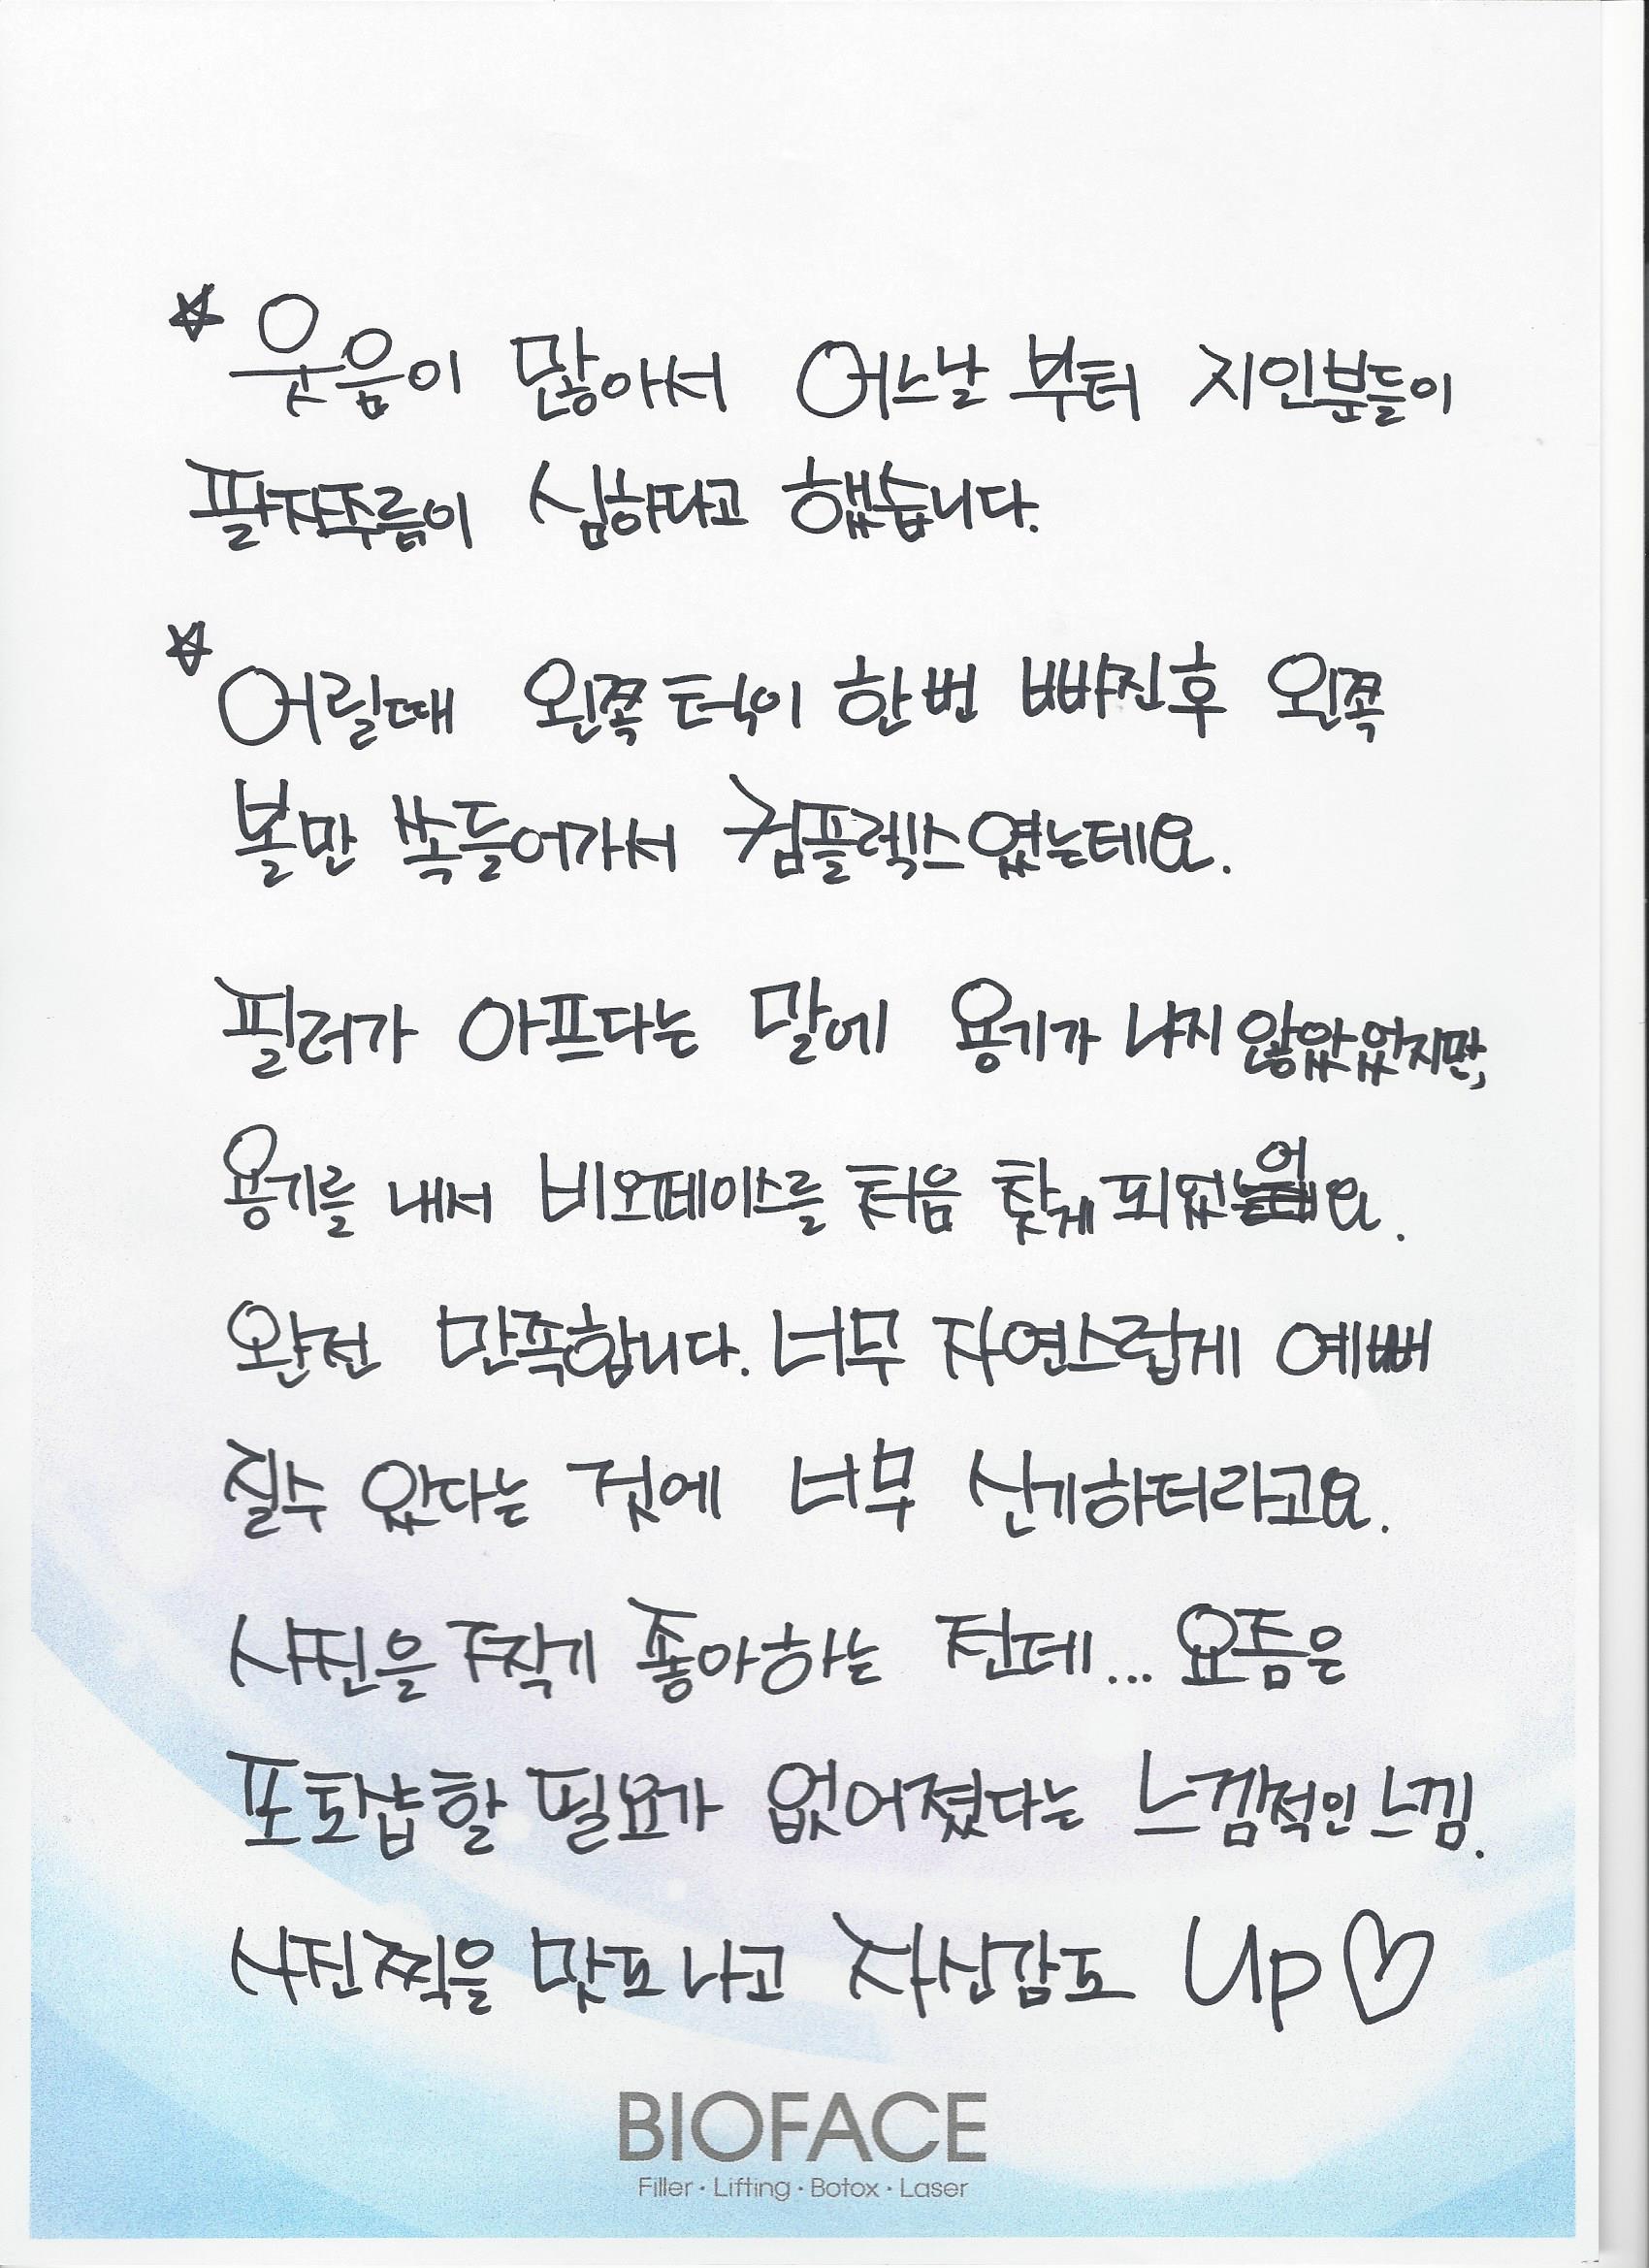 ☆ 웃음이 많아서 어느날 부터 지인분들이
팔자주름이 심하다고 했습니다.
☆ 어릴때 왼쪽 턱이 한번 빠진후 왼쪽
볼만 쏙들어가서 컴플렉스였는데요.
필러가 아프다는 말에 용기가 나지 않았었지만,
용기를 내서 비오페이스를 처음 찾게 되었어요.
완전 만족합니다. 너무 자연스럽게 예뻐
질수 있다는 것에 너무 신기하더라고요.
사진을 찍기 좋아하는 전데... 요즘은
포토샵할 필요가 없어졌다는 느낌적인 느낌.
사진찍을 맛도 나고 자신감도 Up♡
BIOFACE
Filler · Lifting · Botox · Laser